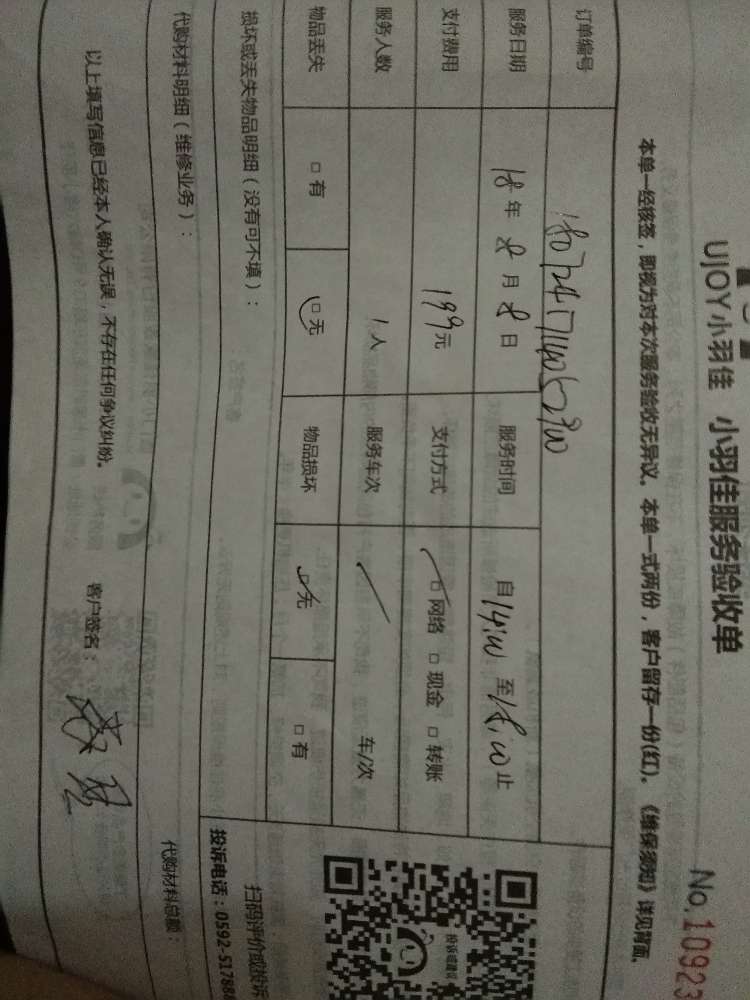 UjOY小羽佳 小羽佳服务验收单
No.10923
本单一经核签，即视为对本次服务验收无异议。本单一式两份，客户留存一份(红)。《维保须知》详见背面。
订单编号
服务日期 18年8月8日 服务时间 自14:00至18:00止
支付费用 199元 支付方式 □网络 □现金 □转账
服务人数 1人 服务车次 车/次
物品丢失 □有 □无 物品损坏 □无 □有
损坏或丢失物品明细（没有可不填）：
投诉或建议
扫码评价或投诉
投诉电话：0592-517886
代购材料明细（维修业务）： 代购材料总额：
以上填写信息已经本人确认无误，不存在任何争议纠纷。 客户签名：